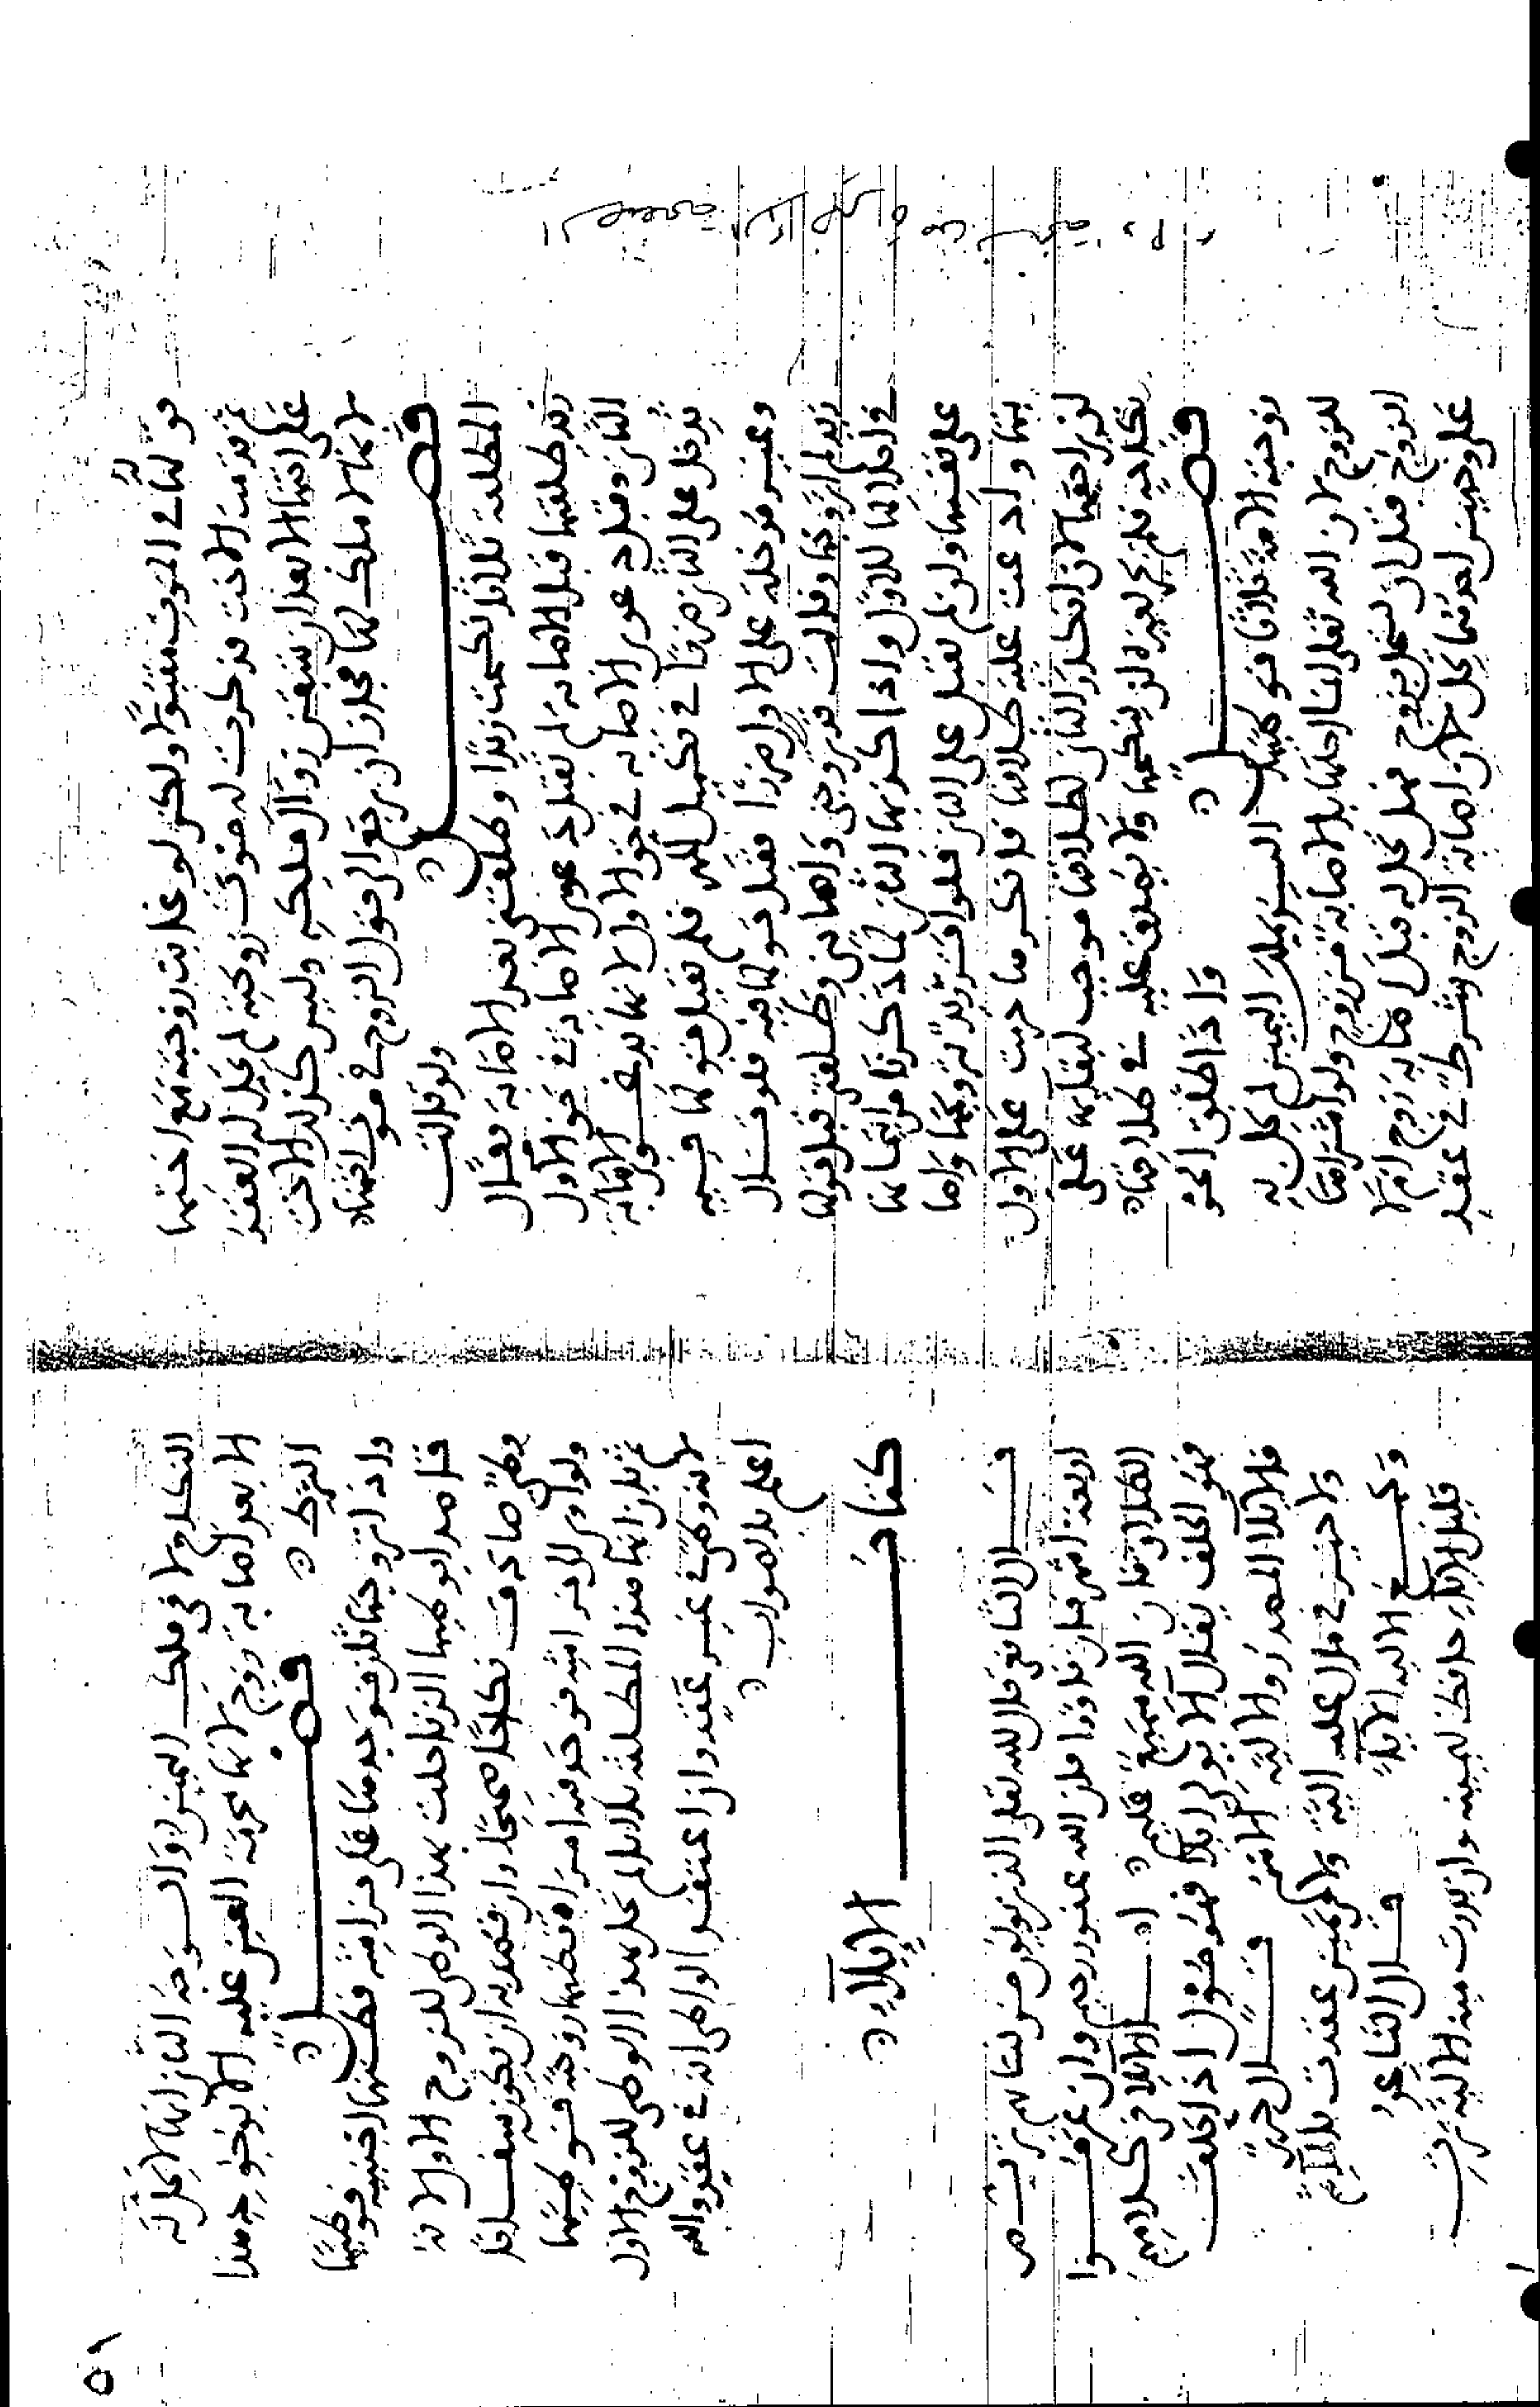 قولها في الموت مقبولا ولكن لو غابت زوجته مع اختها
ثم قدمت الاخت فذكرت له موت زوجته لم يحل له العقد
على اختها الا بعد ان يتيقن زوال ملكه وليس كذلك الاخت
لانها لا ملك لها فجاز ان يرجع الى قول الزوج في موت اختها
فصل ولو قالت
المطلقة ثلاثا نكحت زيدا وطلقني بعد الاصابة فقال
زيد طلقتها قبل الاصابة لم تقبل دعوى الاصابة في حق الاول
الثاني وقبل دعوى الاصابة في حق الاول لانها بدعوى الاصابة
تدخل على الثاني ضررا في تكميل المهر فلم تقبل قولها فيه
وغير مدخلة على الاول ضررا فقبل قولها فيه فلو قال
زيد لم اتزوجها وقالت قد تزوجني واصابني وطلقني قبل قولها
في احلالها للاول واذا كذبها الثاني لما ذكرنا من انها بها
على نفسها ولم تقبل على الثاني فلو اقر زيد بتزويجها واصا
بتها وادعت عليه طلاقها فانكرها حرمت على الاول
لزيد احقها لان انكار الثاني لطلاقها موجب لبقائها على
نكاحه فلم يجز لغيره ان ينكحها ولا يصدق عليه في طلاقها
فصل واذا طلق الحر
زوجته الامة ثلاثا فوطئها السيد بملك اليمين لم تحل به
للزوج لان الله تعالى انما احلها بالاصابة من زوج ولو اشتراها
الزوج قبل ان تنكح بزوج فهل تحل له قبل اصابة زوج ام لا
على وجهين احدهما تحل لان اصابة الزوج شرط في عقد
النكاح لا في ملك اليمين والوجه الثاني انها لا تحل له
الا بعد اصابة زوج لانها محرمة العين عليه الا بوجود هذا
الشرط فصل
واذا تزوجها ثان فوجدها على فراشه فظنها اجنبية فوطئها
قاصدا بوطئها الزنا حلت بهذا الوطئ للزوج الاول لانه
وطئ صادف نكاحا صحيحا وان قصد به ان يكون سفاحا
ولو اوى الى فراشه فوجد فيه امراة فظنها زوجته فوطئها
ثم بان انها هذه المطلقة ثلاثا لم تحل بهذا الوطئ للزوج الاول
لانه وطئ في غير عقد وان اعتقد الواطئ انه في عقد والله
اعلم بالصواب
كتاب
الايلاء
قال الشافعي قال الله تعالى للذين يولون من نسائهم تربص
اربعة اشهر فان فاؤا فان الله غفور رحيم وان عزموا
الطلاق فان الله سميع عليم اما الايلاء في كلامهم
فهو الحلف يقال آلى يولي ايلاء فهو مول اذا حلف
فالايلاء المصدر والالية الاسم قال جرير
ولا خير في مال عليه الية ولا في يمين عقدت بالمآثم
وجمع الالية الايا قال الشاعر
قليل الالايا حافظ ليمينه وان بدرت منه الالية برت
٥١